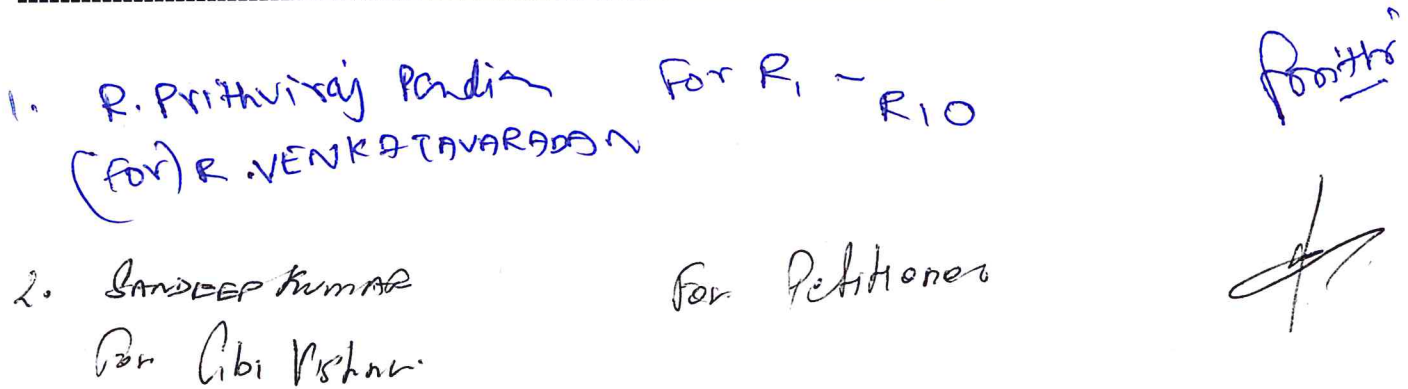 1. R. Prithviraj Pandian For R1 ~ R10
(For) R. VENKATAVARADAN
2. SANDEEP KUMAR For Petitioner
For Cibi Vishnu.